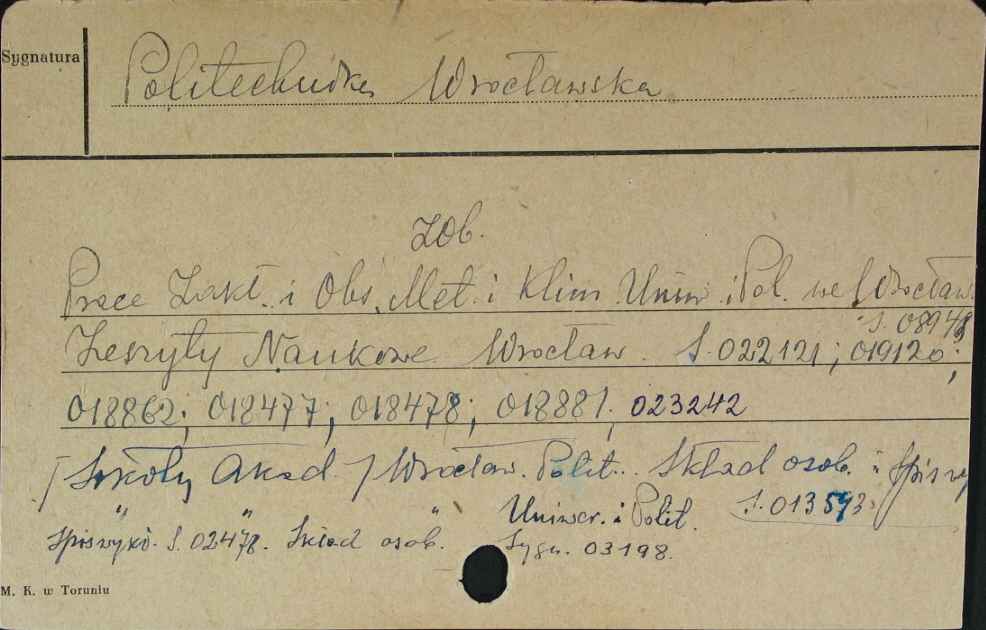 Sygnatura
Politechnika Wrocławska
Zob.
Prace Zakł. i Obs. Met. i Klim Uniw. i Pol. we Wrocław.
S. 08948
Zeszyty Naukowe Wrocław. S. 022121; 019120;
018862; 018477; 018478; 018881; 023242
/Szkoły Akad/ Wrocław. Polit. Skład osob. i Spis wy
" " " Uniwer. i Polit. S. 013573
Spis wykł. S. 02478. Skład osob. Sygn. 03198.
M. K. w Toruniu